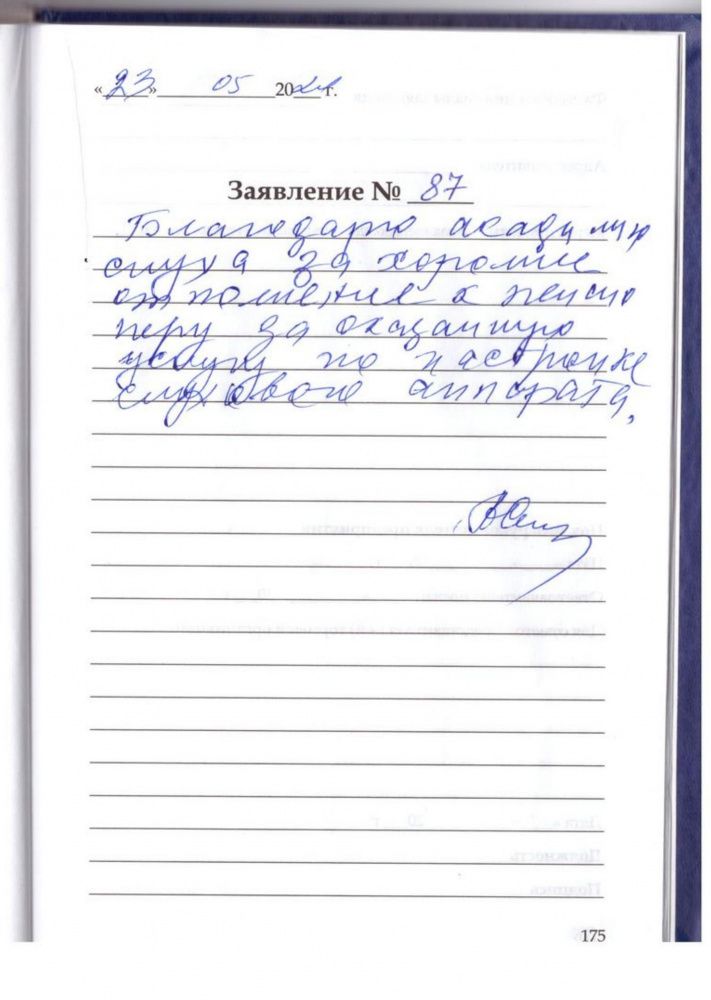 «23» 05 2021 г.
Заявление № 87
Благодарю академию
слуха за хорошие
отношение к пенсио
неру за оказанную
услугу по настройке
слухового аппората,
175